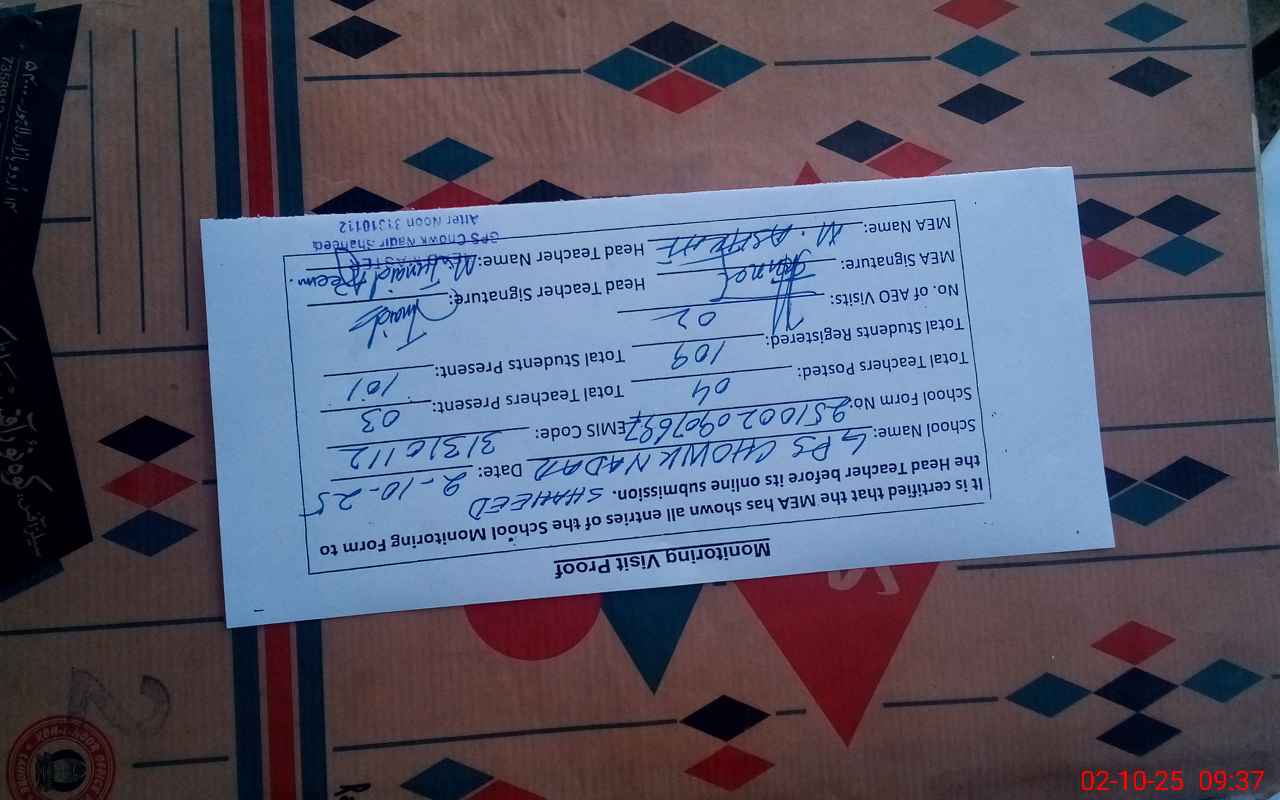 Monitoring Visit Proof
It is certified that the MEA has shown all entries of the School Monitoring Form to
the Head Teacher before its online submission. SHAHEED
School Name: GPS CHOWK NADAR Date: 2-10-25
School Form No: 2510020907697 EMIS Code: 31310112
Total Teachers Posted: 04 Total Teachers Present: 03
Total Students Registered: 109 Total Students Present: 101
No. of AEO Visits: 02
MEA Signature: Head Teacher Signature: Junaid
MEA Name: M. Head Teacher Name: M. Junaid
GPS Chowk Shaheed
After Noon 31310112
02-10-25 09:37